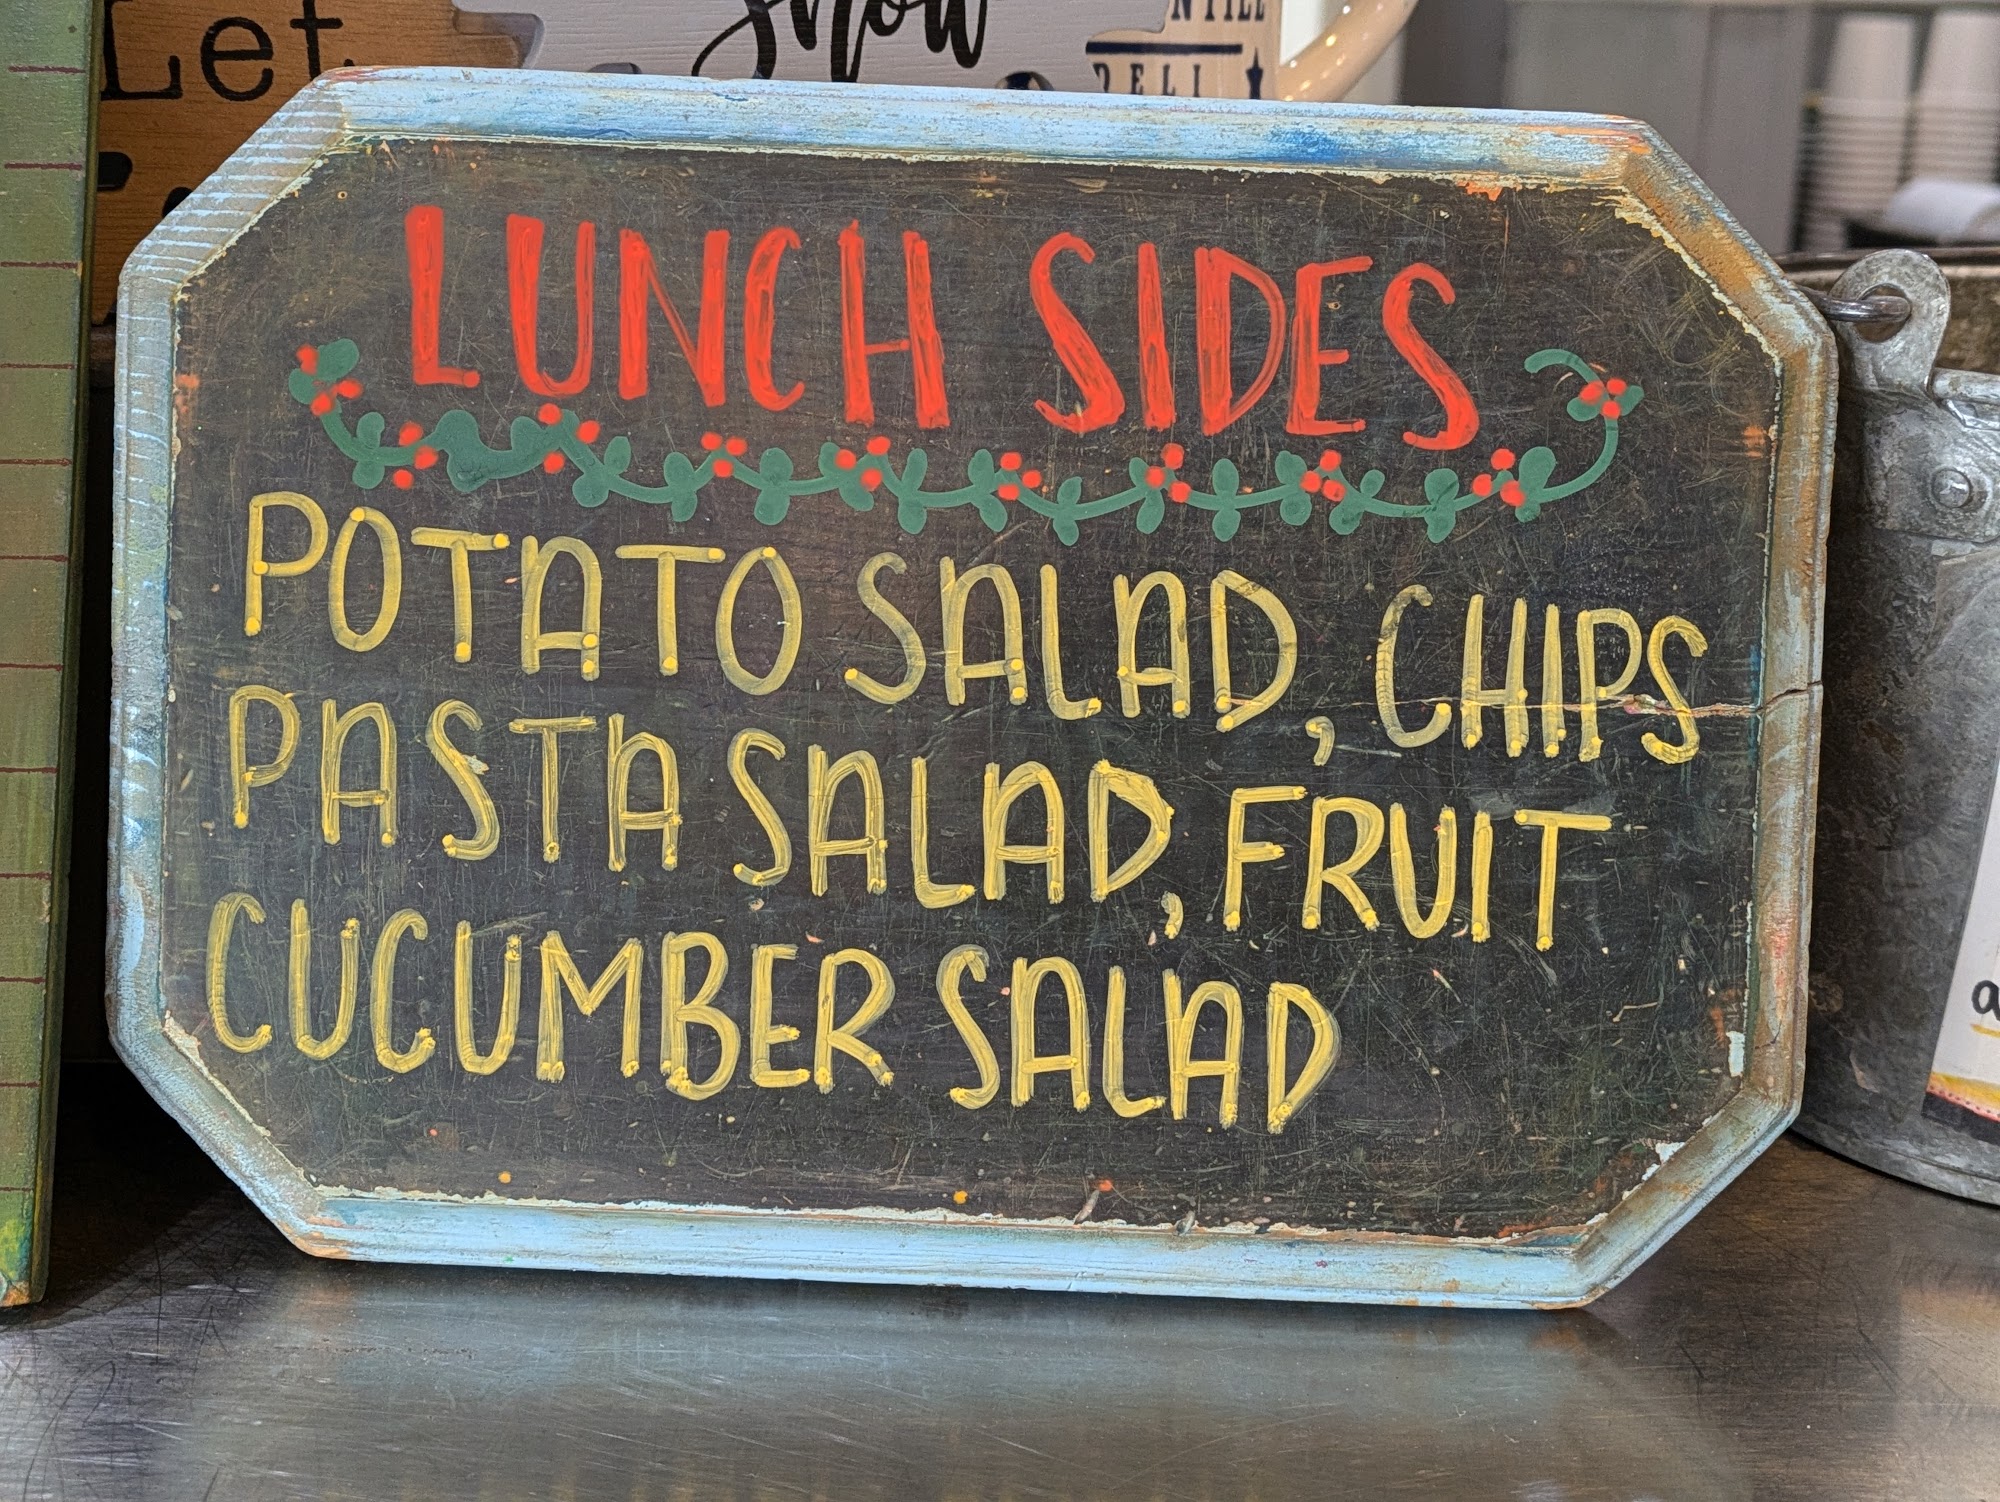 Let
Snow
DELI
LUNCH SIDES
POTATO SALAD, CHIPS
PASTA SALAD, FRUIT
CUCUMBER SALAD